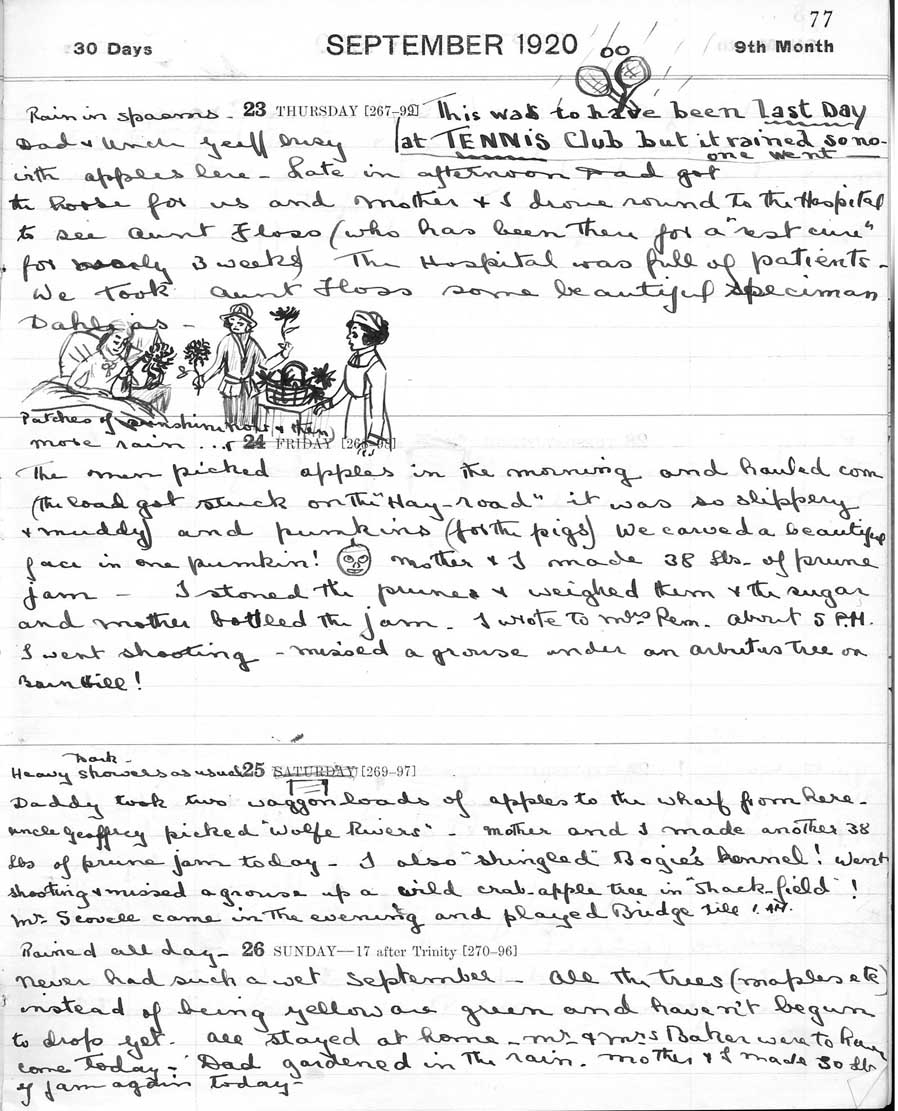 77
30 Days SEPTEMBER 1920 9th Month
Rain in spasms. 23 THURSDAY [267-99] This was to have been Last Day
at TENNIS Club but it rained so no-
one went
Dad & Uncle Geoff busy
with apples here - Late in afternoon Dad got
the horse for us and mother & I drove round to the Hospital
to see Aunt Floss (who has been there for a "rest cure"
for nearly 3 weeks) The Hospital was full of patients -
We took Aunt Floss some beautiful speciman
Dahlias -
Patches of sunshine now & then
more rain ... 24 FRIDAY [268-98]
The men picked apples in the morning and hauled corn
(the load got stuck on the "Hay-road" it was so slippery
& muddy) and pumkins (for the pigs) We carved a beautiful
face in one pumkin! mother & I made 38 lbs. of prune
jam - I stoned the prunes & weighed them & the sugar
and mother bottled the jam. I wrote to Mrs Pem. About 5 P.M.
I went shooting - missed a grouse under an arbutus tree on
Barn Hill!
Dark -
Heavy showers as usual 25 SATURDAY [269-97]
Daddy took two waggon loads of apples to the wharf from here.
Uncle Geoffrey picked "Wolfe Rivers" - Mother and I made another 38
lbs of prune jam today - I also "shingled" Bogie's kennel! Went
shooting & missed a grouse up a wild crab-apple tree in "Shack-field"!
Mr. Scovell came in the evening and played Bridge till 1. AM.
Rained all day - 26 SUNDAY—17 after Trinity [270-96]
Never had such a wet September - All the trees (maples etc)
instead of being yellow are green and haven't begun
to drop yet. All stayed at home - Mr. & Mrs Baker were to have
come today - Dad gardened in the rain. Mother & I made 30 lbs
of jam again today -